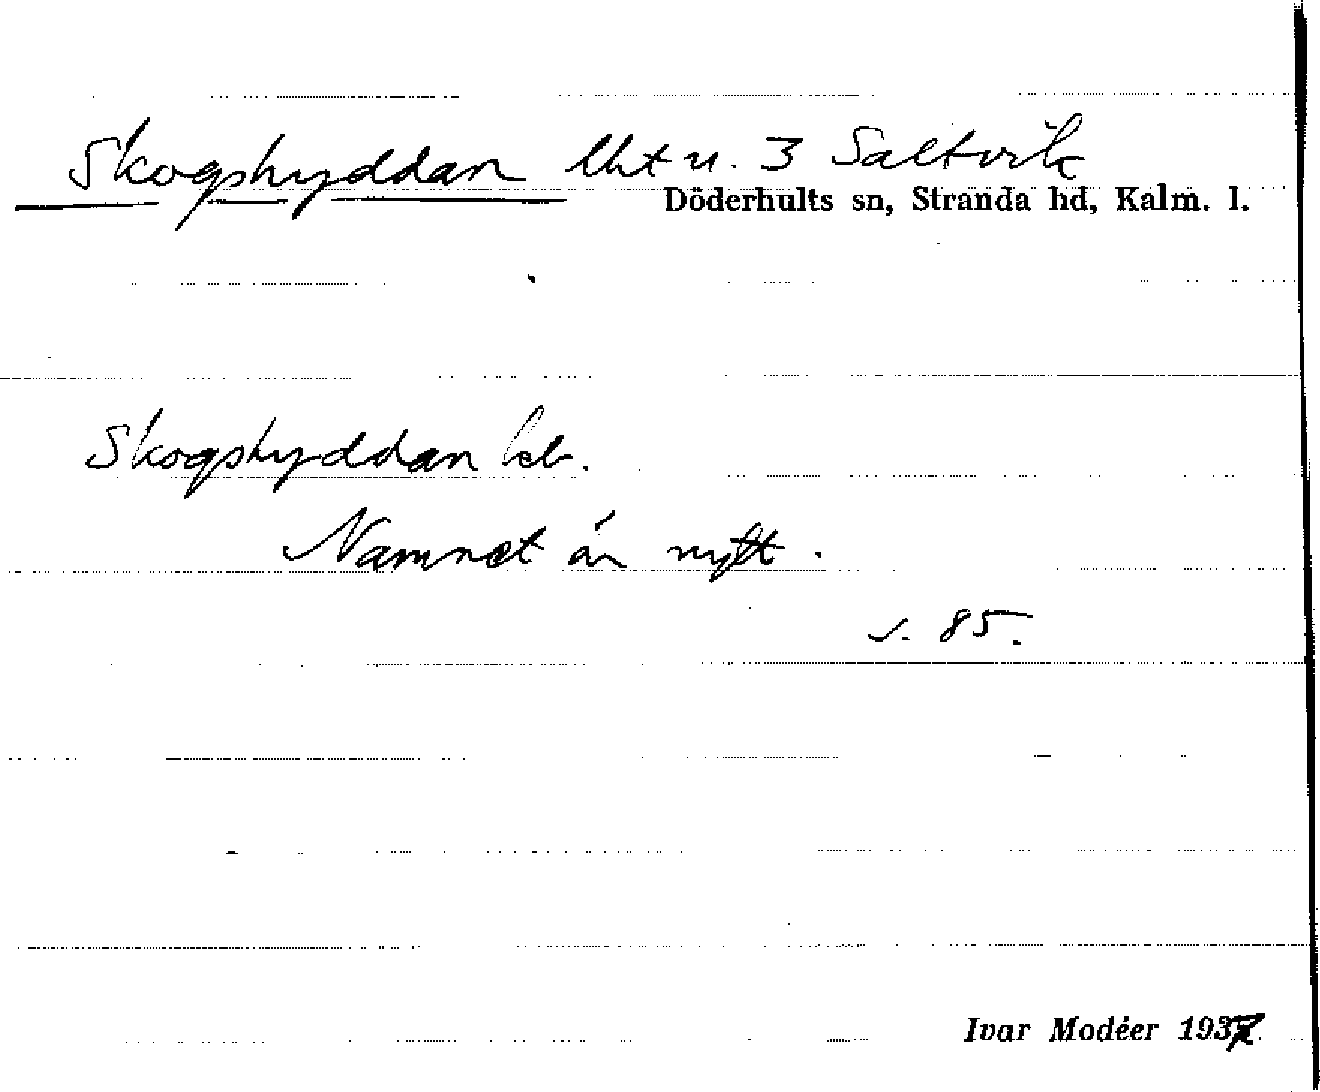 Skogshyddan lht u. 3 Saltvik
Döderhults sn, Stranda hd, Kalm. l.
Skogshyddan
Namnet är nytt.
s. 85.
Ivar Modéer 1937